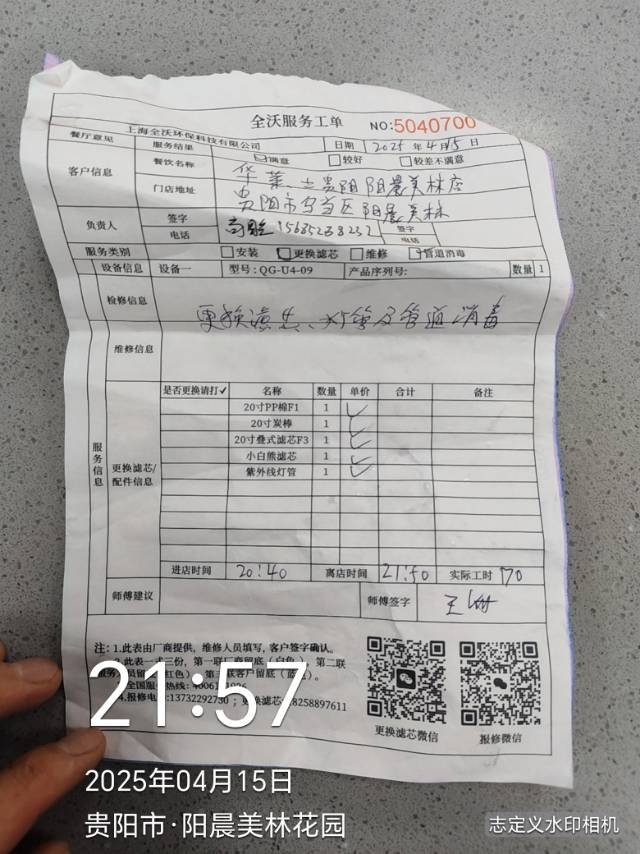 全沃服务工单
NO:5040700
上海全沃环保科技有限公司
日期 2025年4月15日
餐厅意见 服务结果 满意 较好 较差不满意
客户信息 餐饮名称 华莱士贵阳阳晨美林店
门店地址 贵阳市乌当区阳晨美林
负责人 签字 签字
电话 电话
服务类别 安装 更换滤芯 维修 管道消毒
设备信息 设备一 型号:QG-U4-09 产品序列号: 数量 1
检修信息
更换滤芯、灯管及管道消毒
维修信息
服务信息
更换滤芯/配件信息
是否更换请打✓ 名称 数量 单价 合计 备注
20寸PP棉F1 1 ✓
20寸炭棒 1 ✓
20寸叠式滤芯F3 1 ✓
小白熊滤芯 1 ✓
紫外线灯管 1 ✓
进店时间 20:40 离店时间 21:50 实际工时 70
师傅建议 师傅签字
注: 1.此表由厂商提供, 维修人员填写, 客户签字确认。
2.此表一式三份, 第一联厂商留底(白色), 第二联
服务人员留底(红色), 第三联客户留底(蓝色)。
全国服务热线:
4.报修电话:13732292730; 更换滤芯 18258897611
更换滤芯微信
报修微信
21:57
2025年04月15日
贵阳市·阳晨美林花园
志定义水印相机